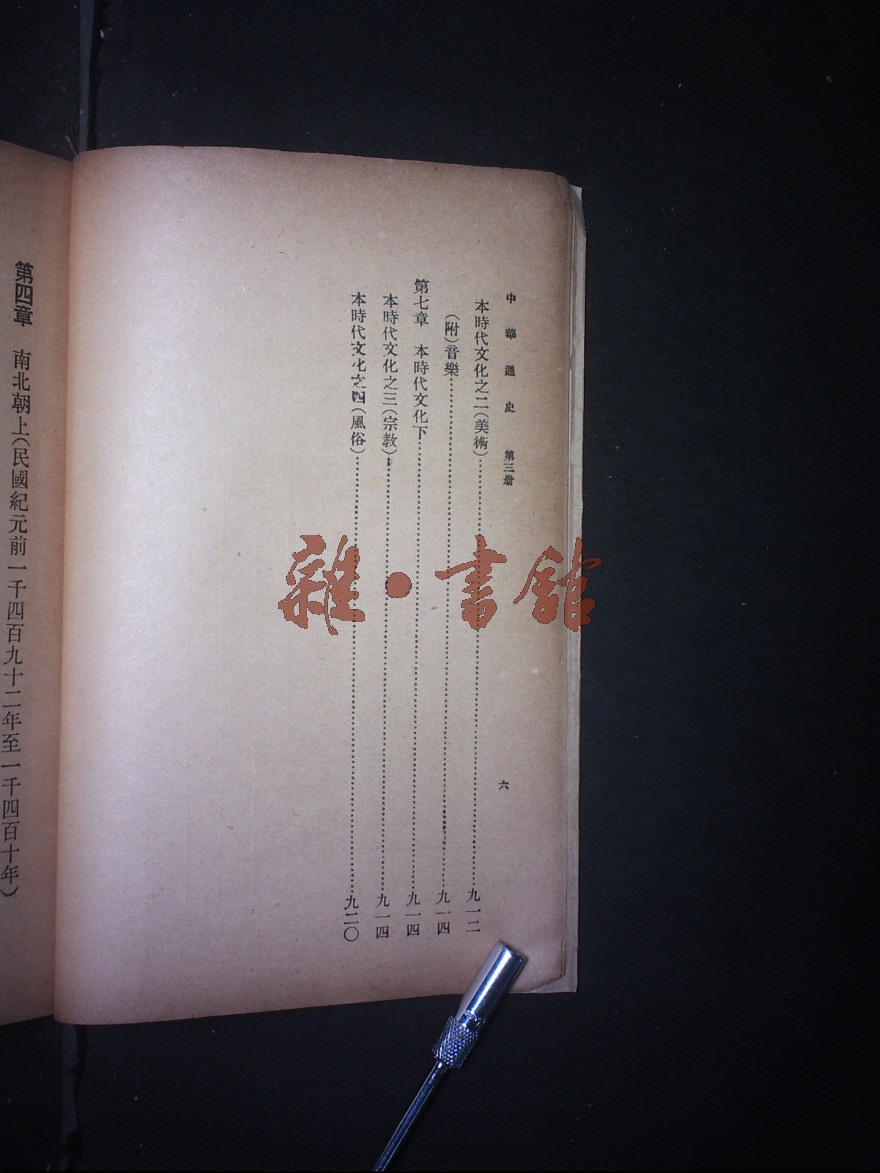 中華通史 第三册 六
本時代文化之二(美術)……九一二
(附)音樂……九一四
第七章 本時代文化下……九一四
本時代文化之三(宗教)……九一四
本時代文化之四(風俗)……九二〇
第四章 南北朝上(民國紀元前一千四百九十二年至一千四百十年)
雜·書館